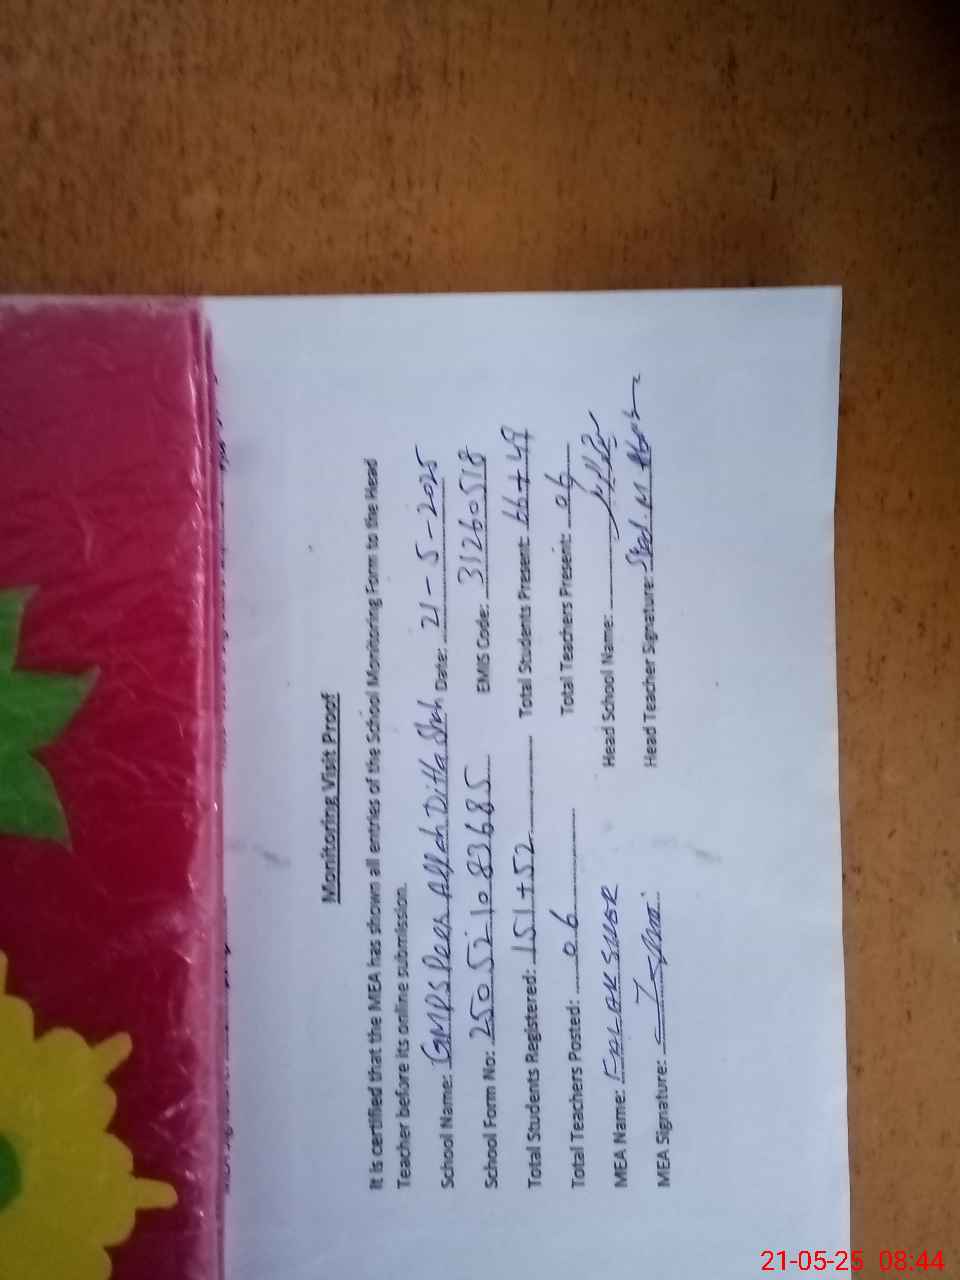 Monitoring Visit Proof
It is certified that the MEA has shown all entries of the School Monitoring Form to the Head
Teacher before its online submission.
School Name: GMPS Peer Allah Ditta Shah Date: 21-5-2025
School Form No: 250521083685 EMIS Code: 31260518
Total Students Registered: 151+52 Total Students Present: 66+49
Total Teachers Posted: 06 Total Teachers Present: 06
MEA Name: Head School Name:
MEA Signature: Head Teacher Signature:
21-05-25 08:44